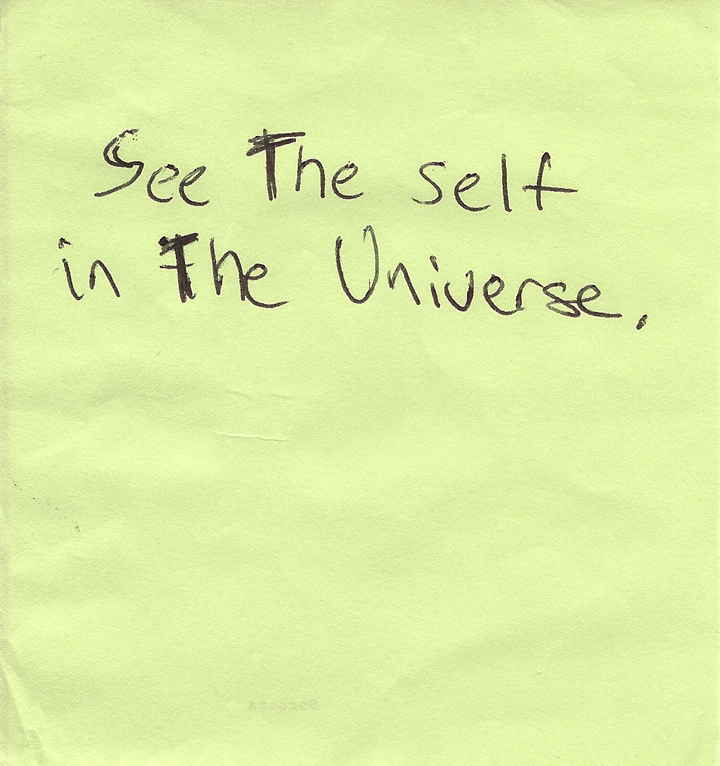 See The self
in The Universe.